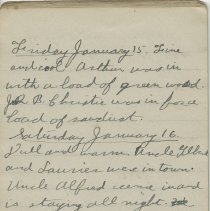 Friday January 15. Fine
and cool. Arthur was in
with a load of green wood.
J. R. Christie was in for a
load of sawdust.
Saturday January 16.
Dull and warm. Uncle
and Laurier were in town.
Uncle Alfred came in and
is staying all night.